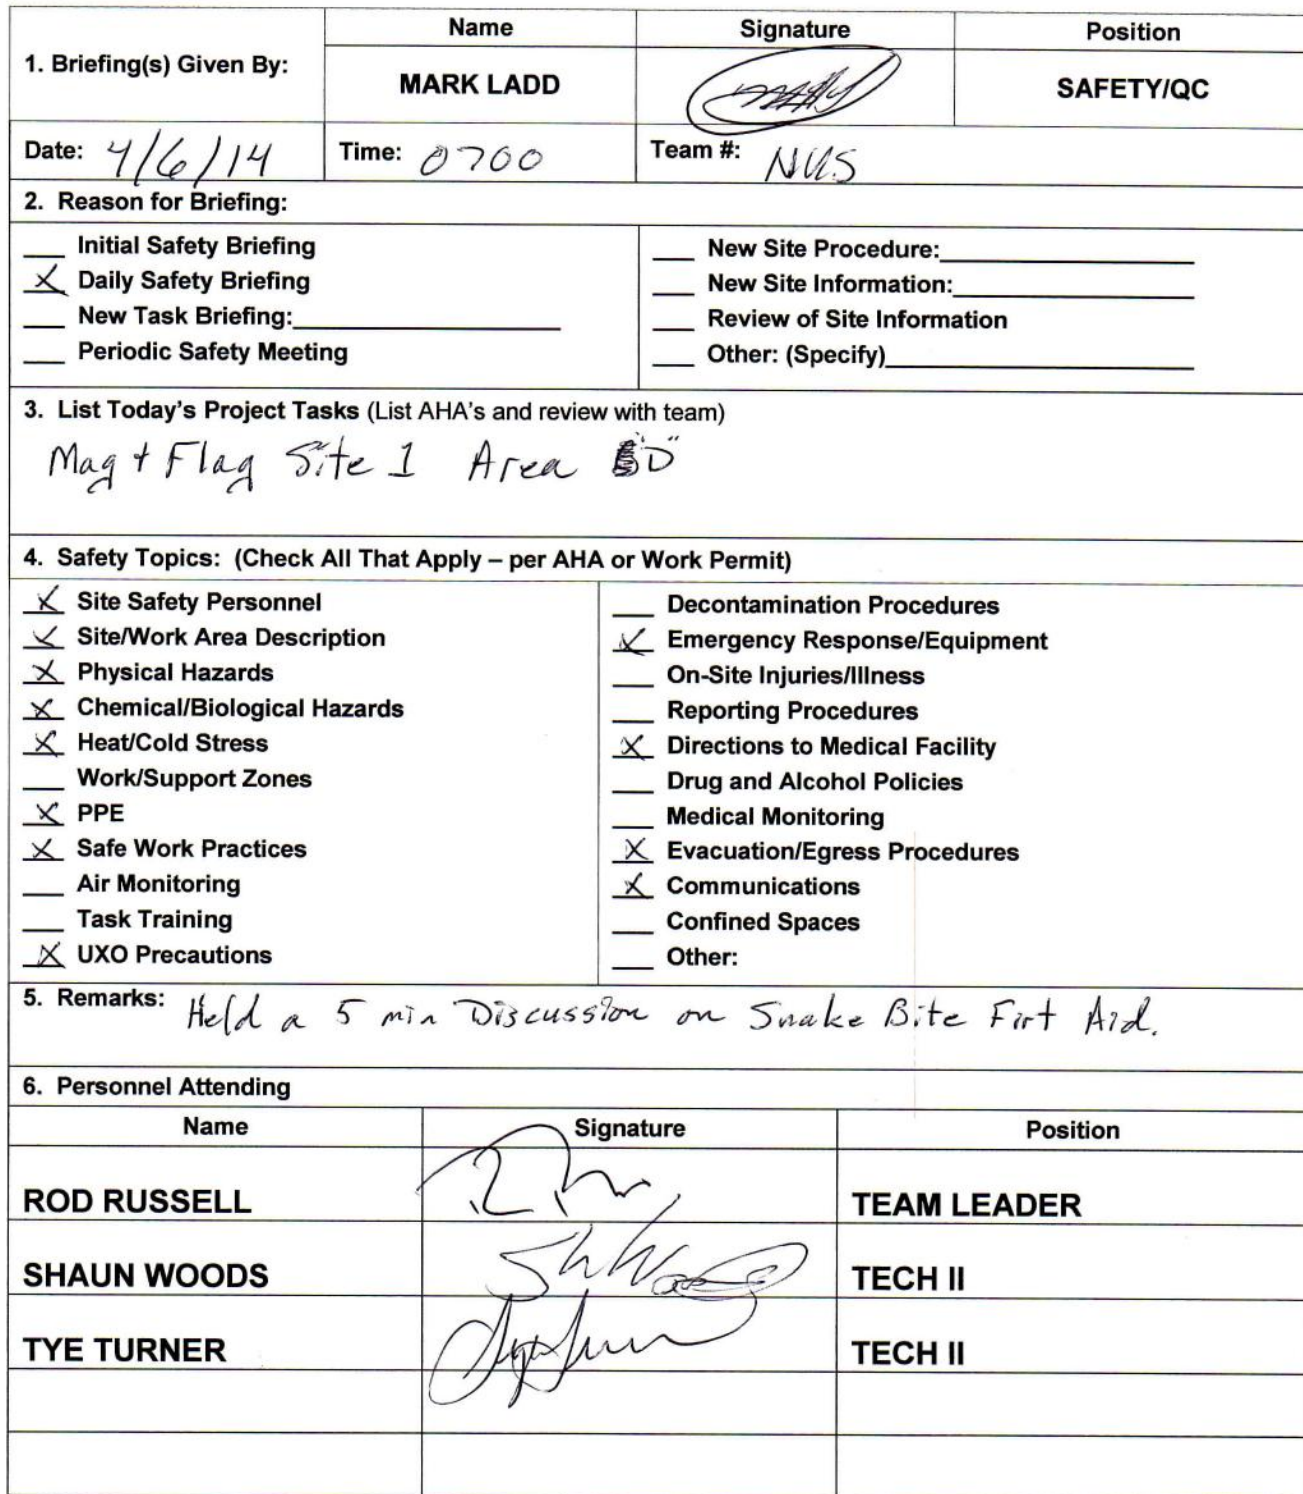 Name Signature Position
1. Briefing(s) Given By: MARK LADD SAFETY/QC
Date: 4/6/14 Time: 0700 Team #: NUS
2. Reason for Briefing:
___ Initial Safety Briefing
X Daily Safety Briefing
___ New Task Briefing:___
___ Periodic Safety Meeting
___ New Site Procedure:___
___ New Site Information:___
___ Review of Site Information
___ Other: (Specify)___
3. List Today's Project Tasks (List AHA's and review with team)
Mag + Flag Site 1 Area "D"
4. Safety Topics: (Check All That Apply – per AHA or Work Permit)
X Site Safety Personnel
X Site/Work Area Description
X Physical Hazards
X Chemical/Biological Hazards
X Heat/Cold Stress
___ Work/Support Zones
X PPE
X Safe Work Practices
___ Air Monitoring
___ Task Training
X UXO Precautions
___ Decontamination Procedures
X Emergency Response/Equipment
___ On-Site Injuries/Illness
___ Reporting Procedures
X Directions to Medical Facility
___ Drug and Alcohol Policies
___ Medical Monitoring
X Evacuation/Egress Procedures
X Communications
___ Confined Spaces
___ Other:
5. Remarks: Held a 5 min Discussion on Snake Bite Firt Aid.
6. Personnel Attending
Name Signature Position
ROD RUSSELL TEAM LEADER
SHAUN WOODS TECH II
TYE TURNER TECH II